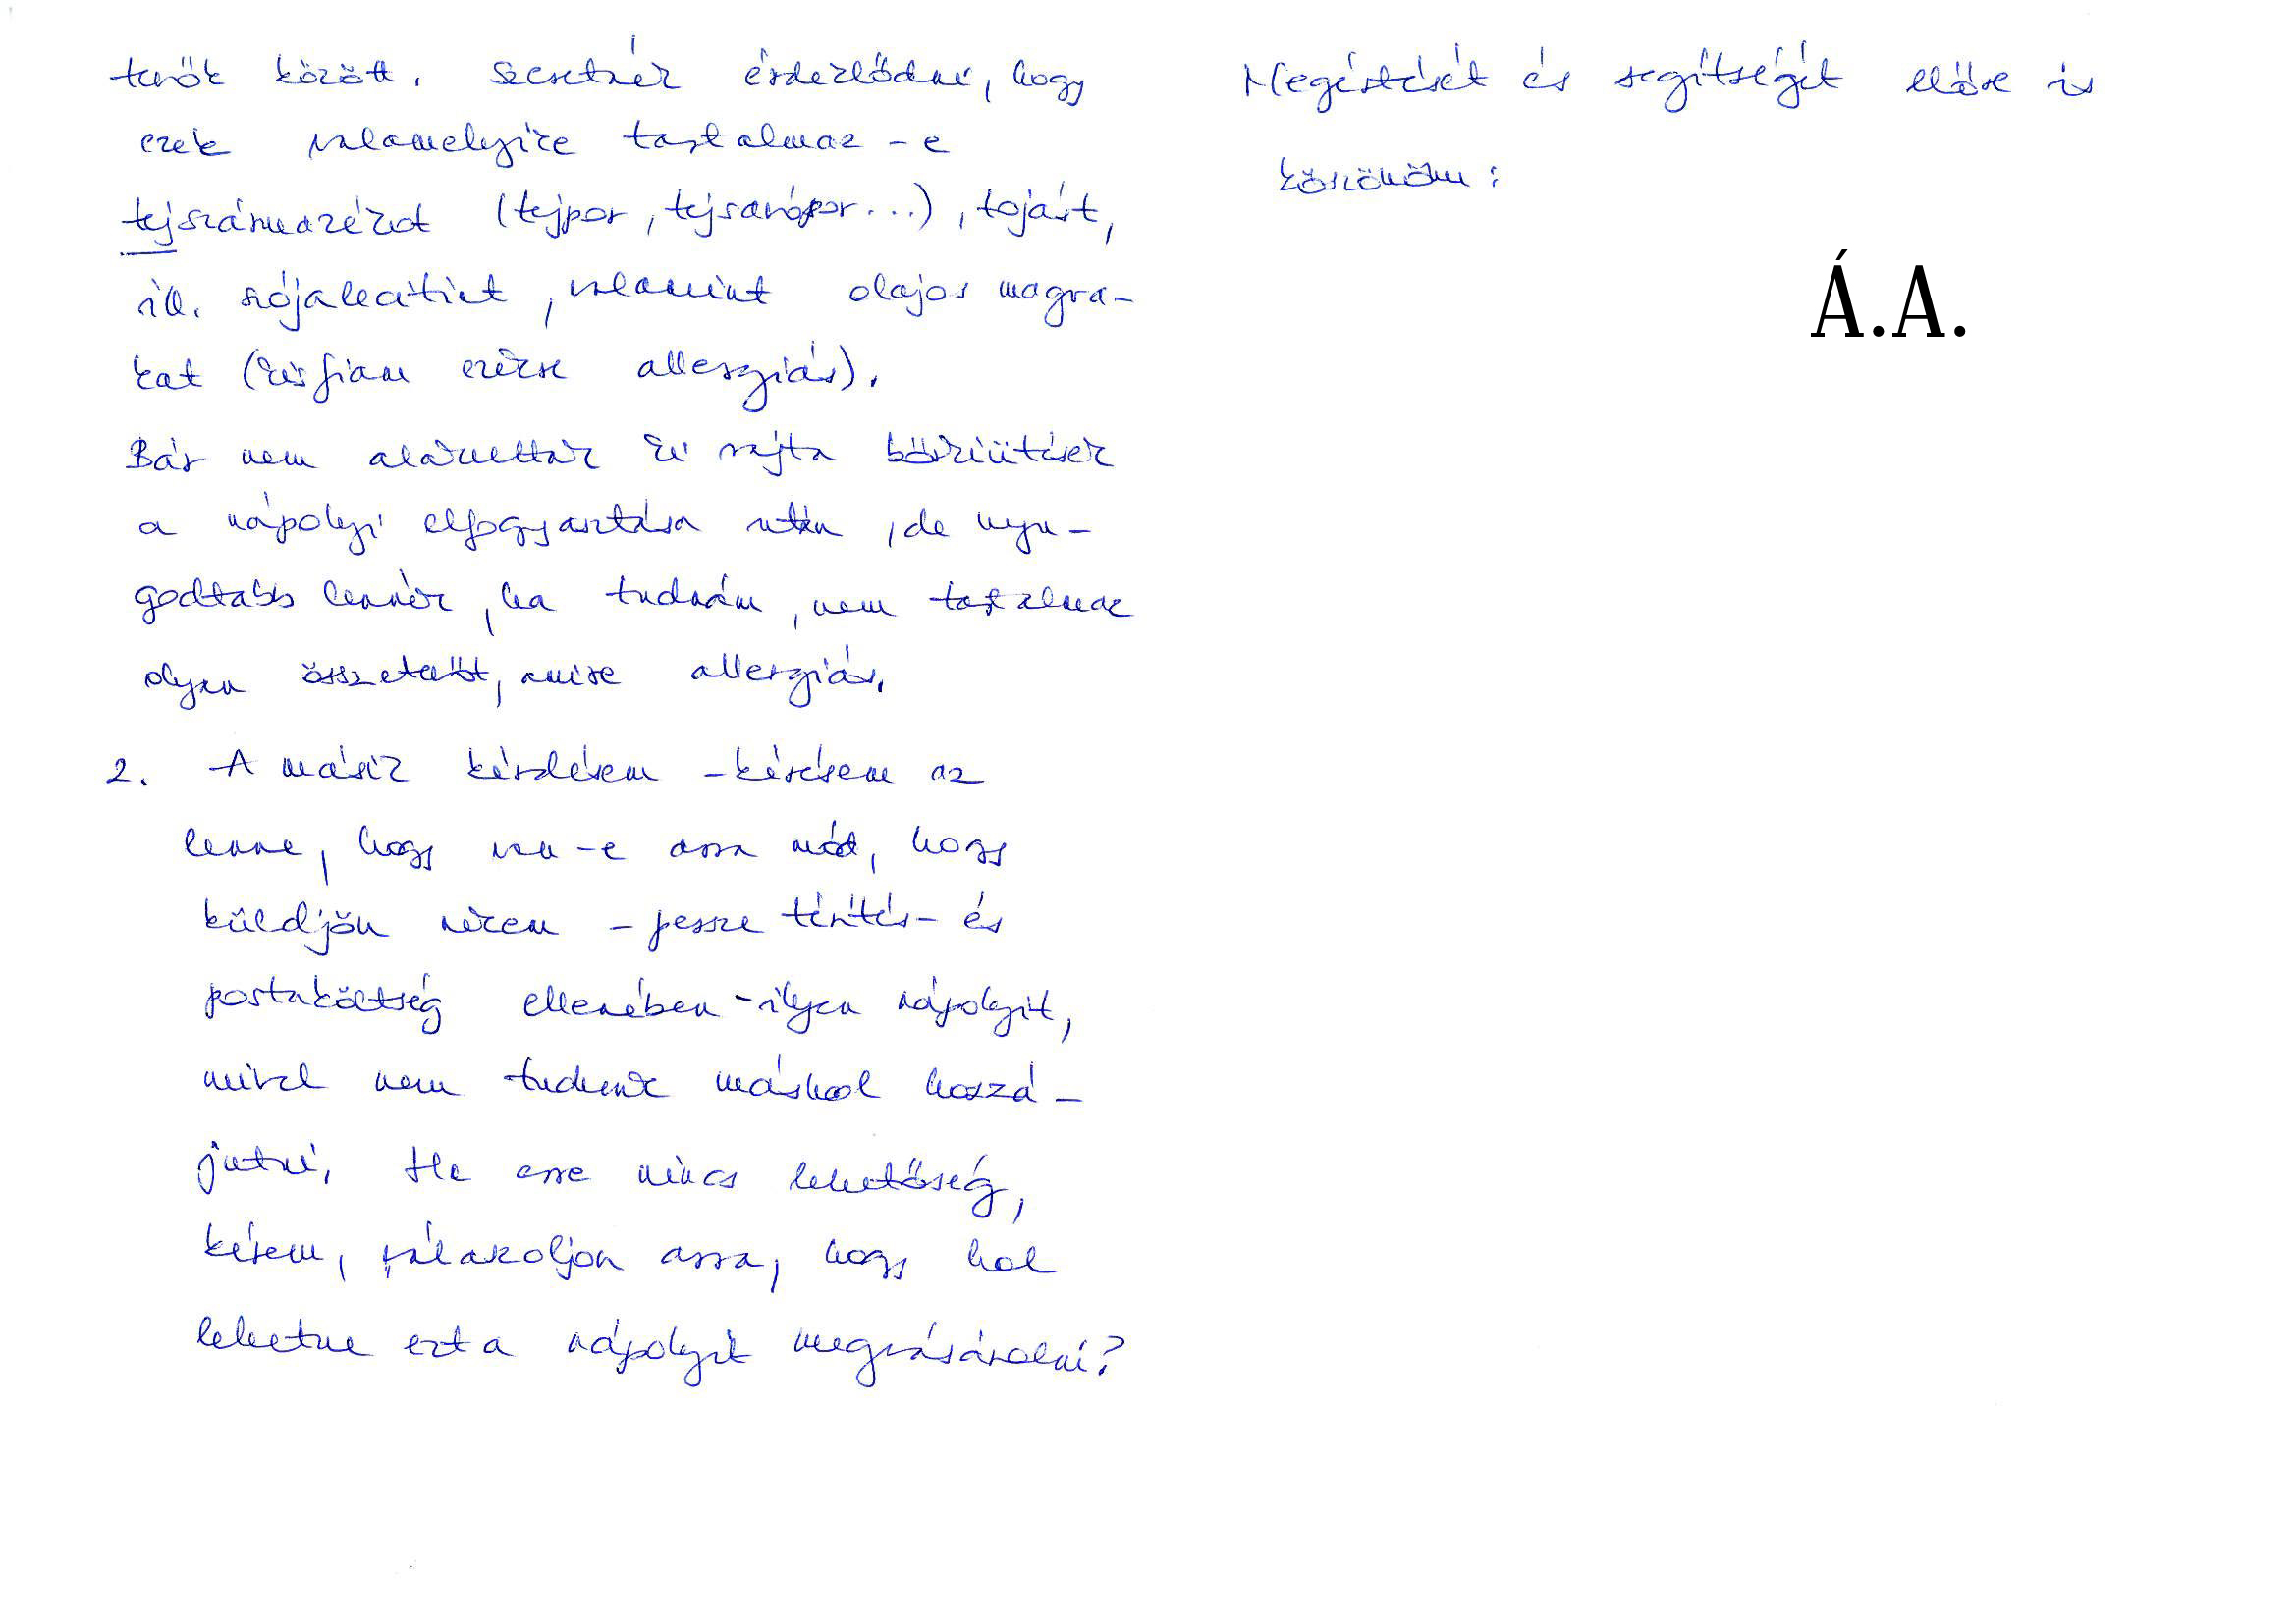 tevők között. Szeretnék érdeklődni, hogy
ezek valamelyike tartalmaz-e
tejszármazékot (tejpor, tejsavópor...), tojást,
ill. szójalecitint, valamint olajos magva-
kat (kisfiam ezekre allergiás).
Bár nem alakultak ki rajta bőrkiütések
a nápolyi elfogyasztása után, de nyu-
godtabb lennék, ha tudnám, nem tartalmaz
olyan összetevőt, amire allergiás.
2. A másik kérdésem - kérésem az
lenne, hogy van-e arra mód, hogy
küldjön nekem - persze térítés- és
postaköltség ellenében - ilyen nápolyit,
mivel nem tudunk máshol hozzá-
jutni. Ha erre nincs lehetőség,
kérem, válaszoljon arra, hogy hol
lehetne ezt a nápolyit megvásárolni?
Megértését és segítségét előre is
köszönöm:
Á.A.